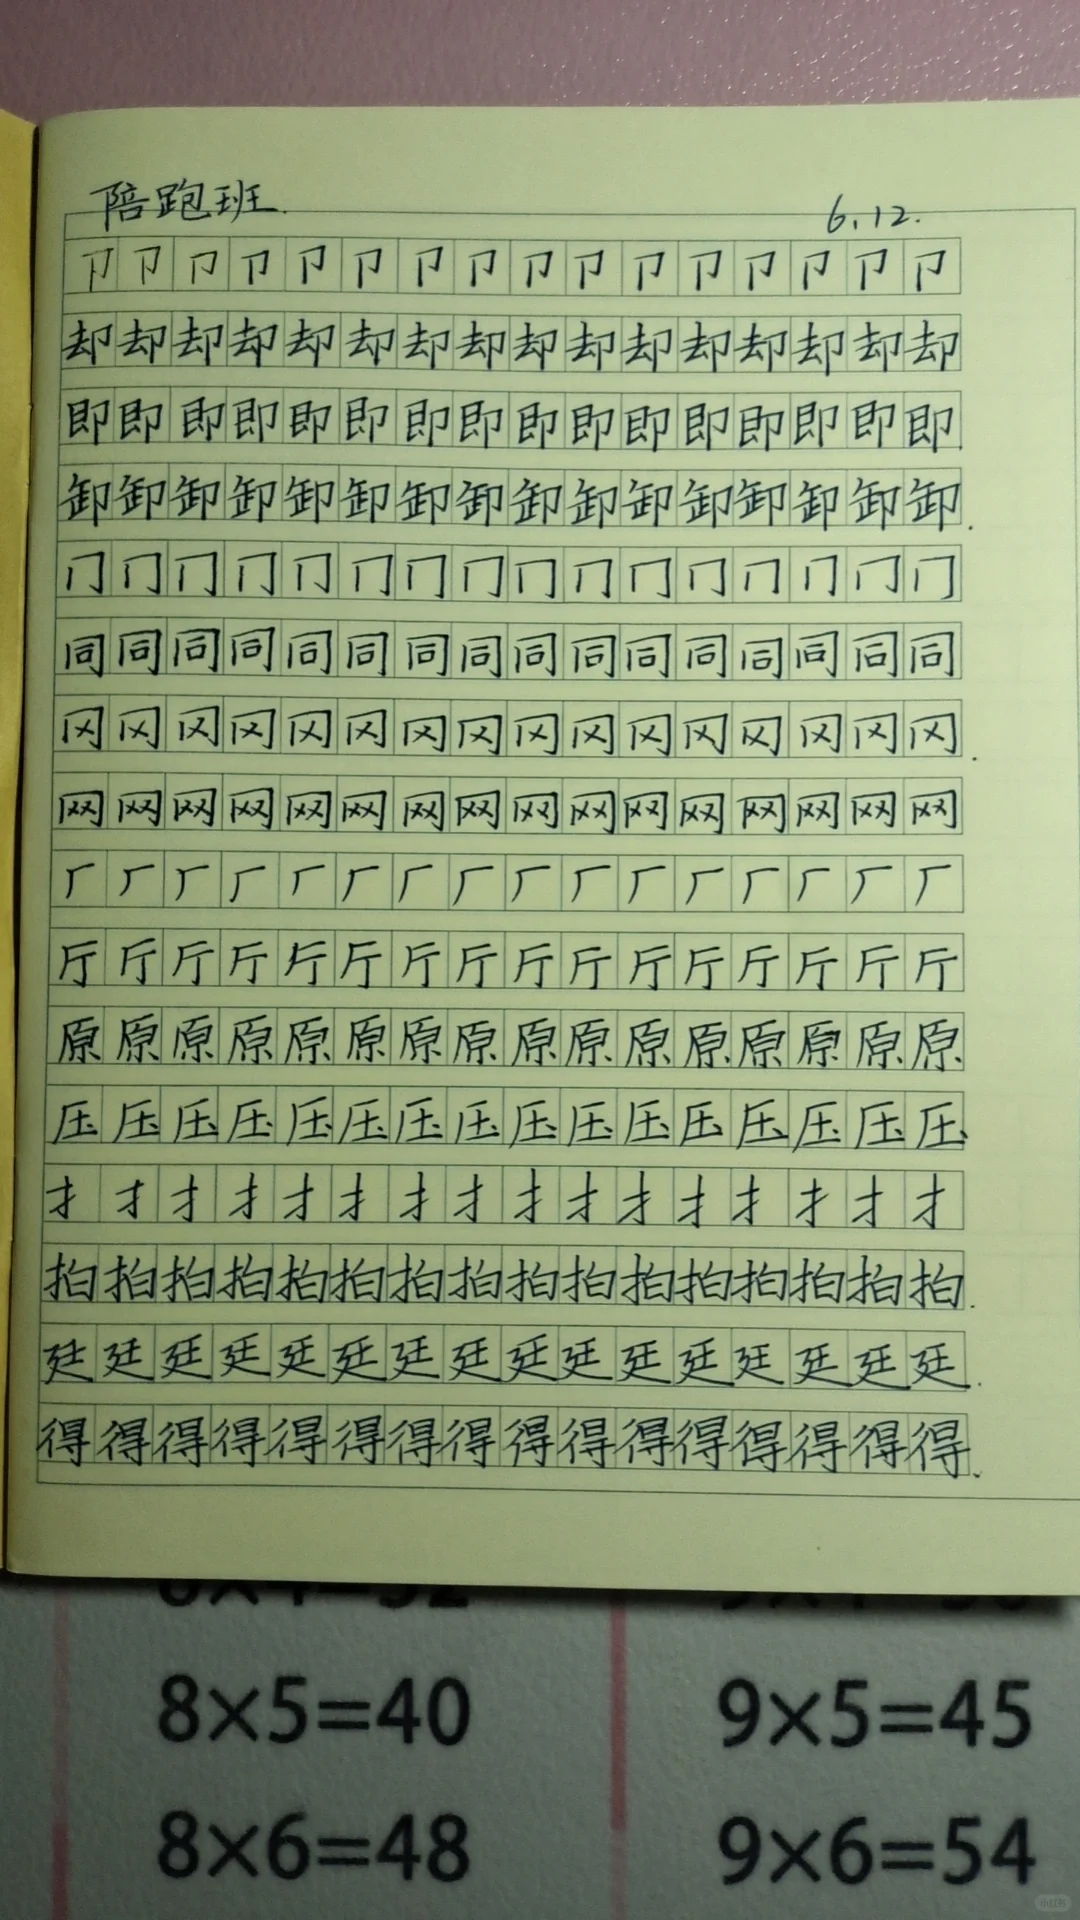 陪跑班.
6.12.
卩卩卩卩卩卩卩卩卩卩卩卩卩卩卩卩
却却却却却却却却却却却却却却却却
即即即即即即即即即即即即即即即即.
卸卸卸卸卸卸卸卸卸卸卸卸卸卸卸卸.
冂冂冂冂冂冂冂冂冂冂冂冂冂冂冂冂
同同同同同同同同同同同同同同同同
冈冈冈冈冈冈冈冈冈冈冈冈冈冈冈冈.
网网网网网网网网网网网网网网网网
厂厂厂厂厂厂厂厂厂厂厂厂厂厂厂厂
厅厅厅厅厅厅厅厅厅厅厅厅厅厅厅厅
原原原原原原原原原原原原原原原原.
压压压压压压压压压压压压压压压压
扌扌扌扌扌扌扌扌扌扌扌扌扌扌扌扌
拍拍拍拍拍拍拍拍拍拍拍拍拍拍拍拍.
廷廷廷廷廷廷廷廷廷廷廷廷廷廷廷廷.
得得得得得得得得得得得得得得得得.
8×5=40 9×5=45
8×6=48 9×6=54
小红书